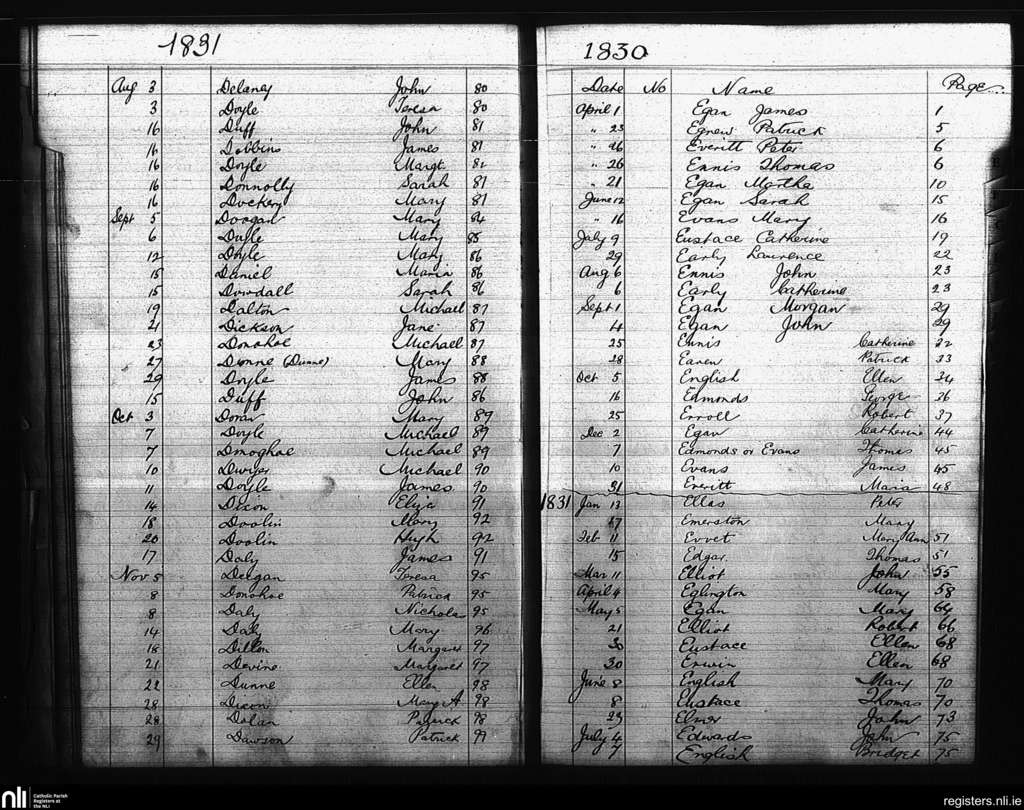 1831
Aug 3 Delaney John 80
3 Doyle Teresa 80
16 Duff John 81
16 Dobbins James 81
16 Doyle Margt 81
16 Donnolly Sarah 81
16 Dockery Mary 81
Sept 5 Doogan Mary 84
6 Duffe Mary 85
12 Doyle Mary 86
15 Daniel Maria 86
15 Dowdall Sarah 86
19 Dalton Michael 87
21 Dickson Jane 87
23 Donohoe Michael 87
27 Donne (Dunne) Mary 88
29 Doyle James 88
15 Duff John 86
Oct 3 Doran Mary 89
7 Doyle Michael 89
7 Donoghoe Michael 89
10 Dwyer Michael 90
11 Doyle James 90
14 Dixon Eliza 91
18 Doolin Mary 92
20 Doolin Hugh 92
17 Daly James 91
Nov 5 Deegan Teresa 95
8 Donohoe Patrick 95
8 Daly Nicholas 95
14 Daly Mary 96
18 Dillon Margaret 97
21 Devine Margaret 97
22 Dunne Ellen 98
28 Dixon Mary A 98
28 Dolan Patrick 98
29 Dawson Patrick 99
1830
Date No Name Page
April 1 Egan James 1
" 23 Egnew Patrick 5
" 26 Everitt Peter 6
" 26 Ennis Thomas 6
" 21 Egan Martha 10
June 12 Egan Sarah 15
" 16 Evans Mary 16
July 9 Eustace Catherine 19
29 Early Laurence 22
Aug 6 Ennis John 23
6 Early Catherine 23
Sept 1 Egan Morgan 29
4 Egan John 29
25 Ennis Catherine 32
28 Earen Patrick 33
Oct 5 English Ellen 34
16 Edmonds George 36
25 Erroll Robert 37
Dec 2 Egan Catherine 44
7 Edmonds or Evans Thomas 45
10 Evans James 45
31 Everitt Maria 48
1831 Jan 13 Ellas Peter
17 Emerston Mary
Feb 11 Evvet Mary Ann 51
15 Edgar Thomas 51
Mar 11 Elliot John 55
April 4 Eglington Mary 58
May 5 Egan Mary 64
21 Elliot Robert 66
30 Eustace Ellen 68
30 Erwin Ellen 68
June 8 English Mary 70
8 Eustace Thomas 70
23 Elmer John 73
July 4 Edwards John 75
7 English Bridget 75
nli Catholic Parish
Registers at
the NLI
registers.nli.ie